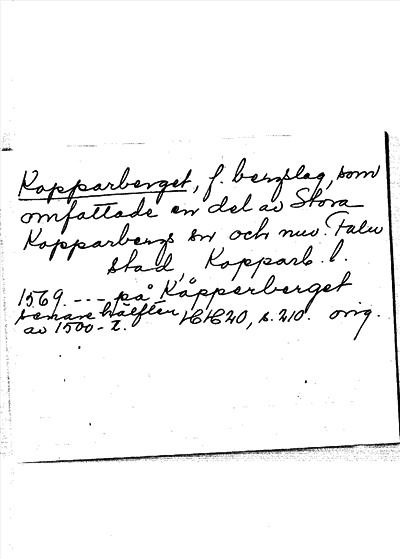 Kopparberget, f. bergslag, som
omfattade en del av Stora
Kopparbergs sn och nuv. Falu
stad, Kopparb. l.
1569. --- på Käpperberget
senare hälften HH 20, s. 210. orig.
av 1500-t.